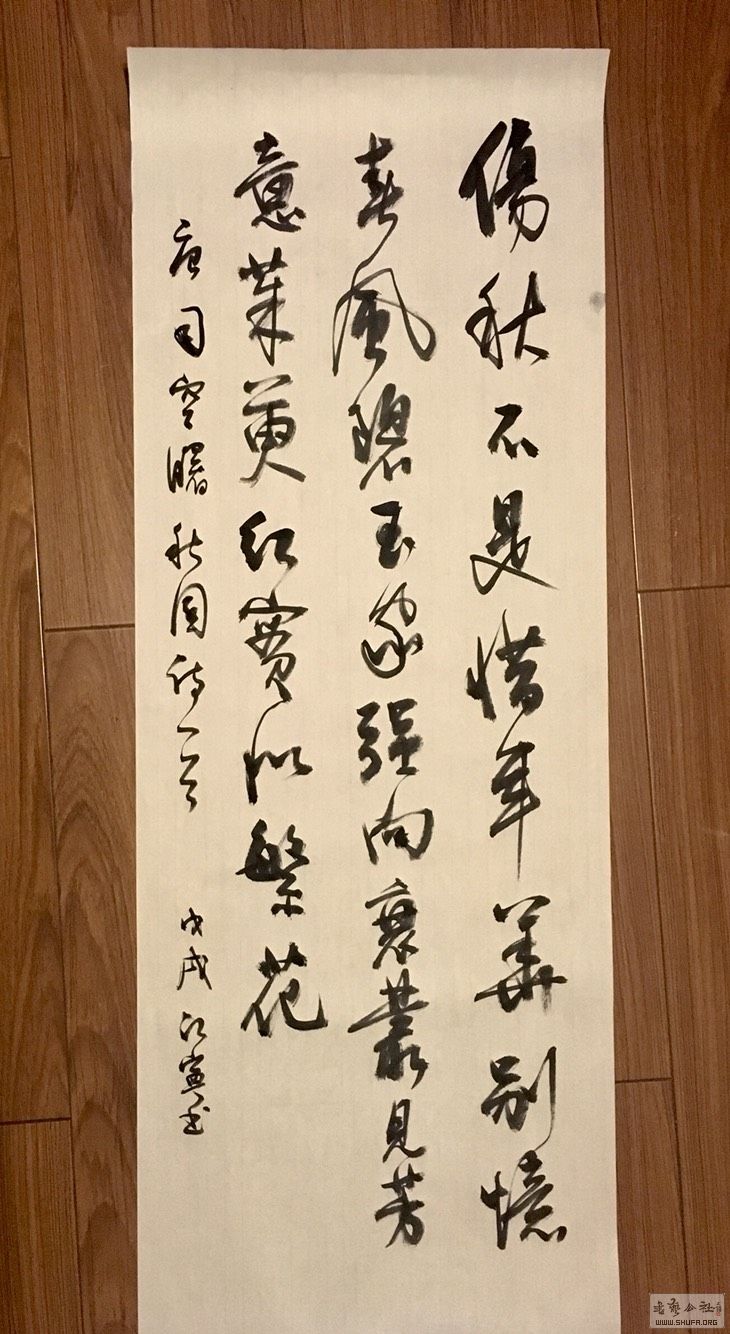 傷秋不是惜年華別憶
春風碧玉家強向衰叢見芳
意茱萸紅實似繁花
唐司空曙秋園詩一首 戊戌江寅書
書藝公社
WWW.SHUFA.ORG